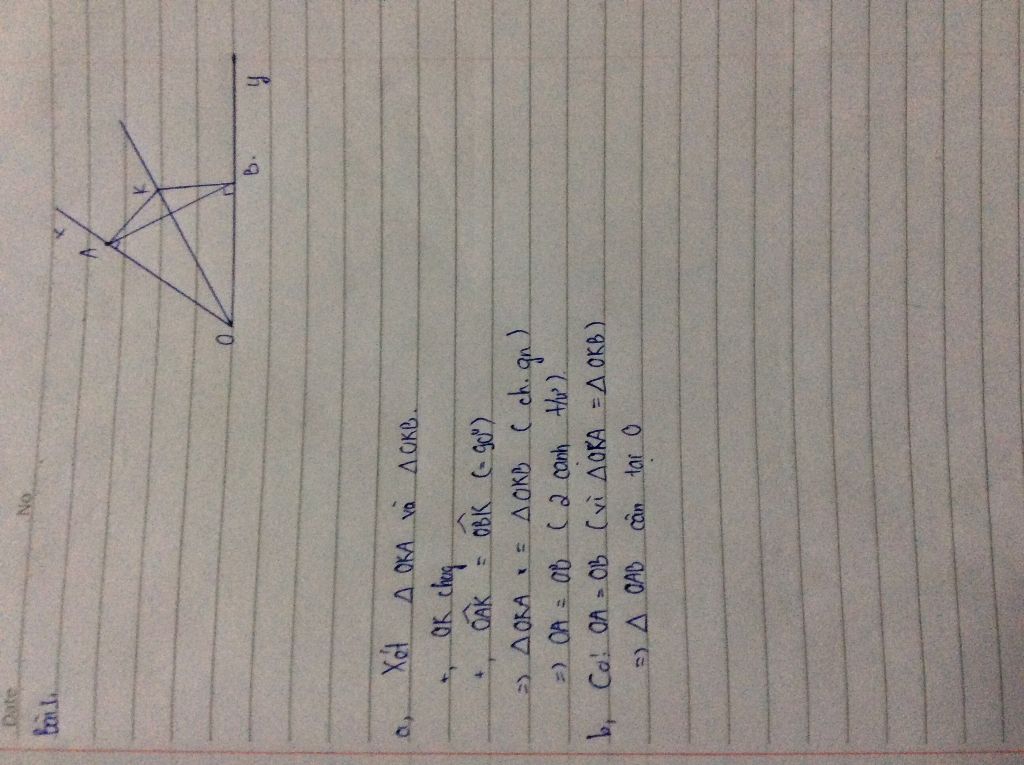 Date
No
Bài 1,
x
A
K
O
B.
y
a, Xét Δ OKA và ΔOKB.
+, OK chug
+, OAK = OBK (= 90°)
=) ΔOKA = ΔOKB ( ch. gn)
=) OA = OB ( 2 cạnh t/ư)
b, Có: OA = OB (vì ΔOKA = ΔOKB)
=) Δ OAB cân tại O